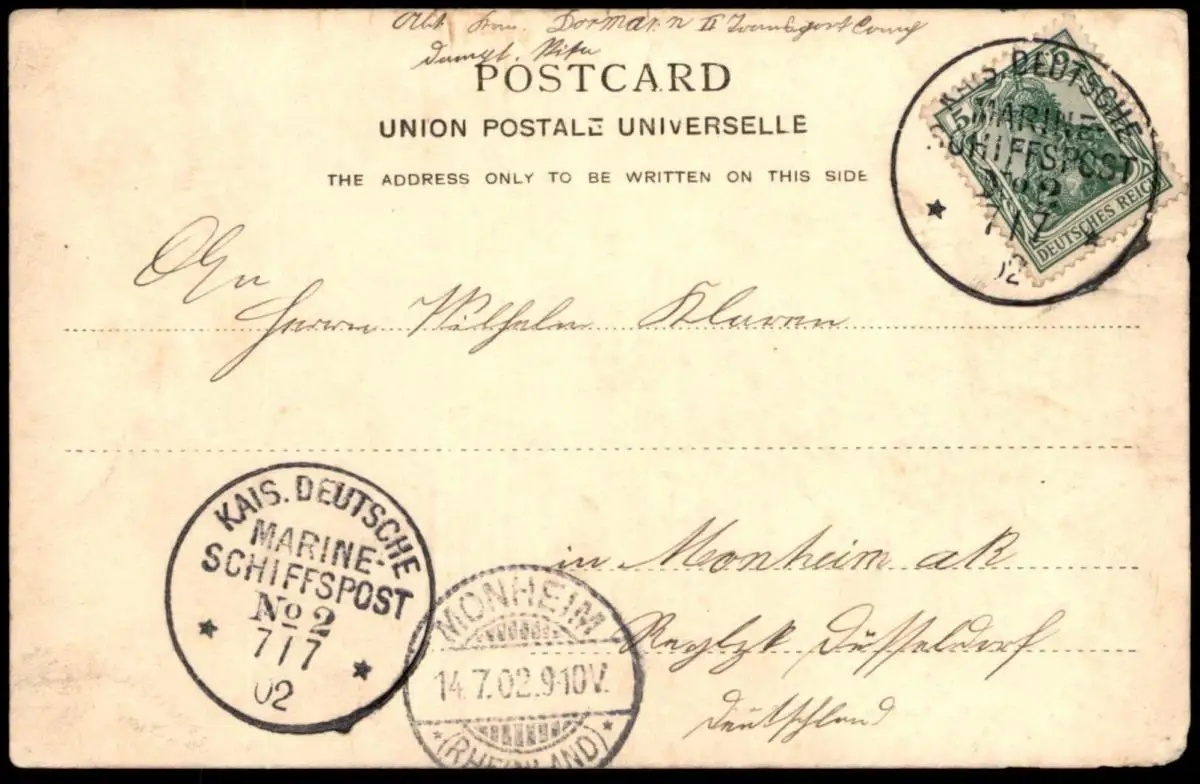 Abt. from Dormann II Transport Comp
Dampf. Rita
POSTCARD
UNION POSTALE UNIVERSELLE
THE ADDRESS ONLY TO BE WRITTEN ON THIS SIDE
KAIS. DEUTSCHE
MARINE-
SCHIFFSPOST
No 2
7/7
02
5
DEUTSCHES REICH
An
Herrn Wilhelm Klaren
in Monheim a/R
Regbzk Düsseldorf
Deutschland
KAIS. DEUTSCHE
MARINE-
SCHIFFSPOST
No 2
7/7
02
MONHEIM
14.7.02.9-10V.
(RHEINLAND)